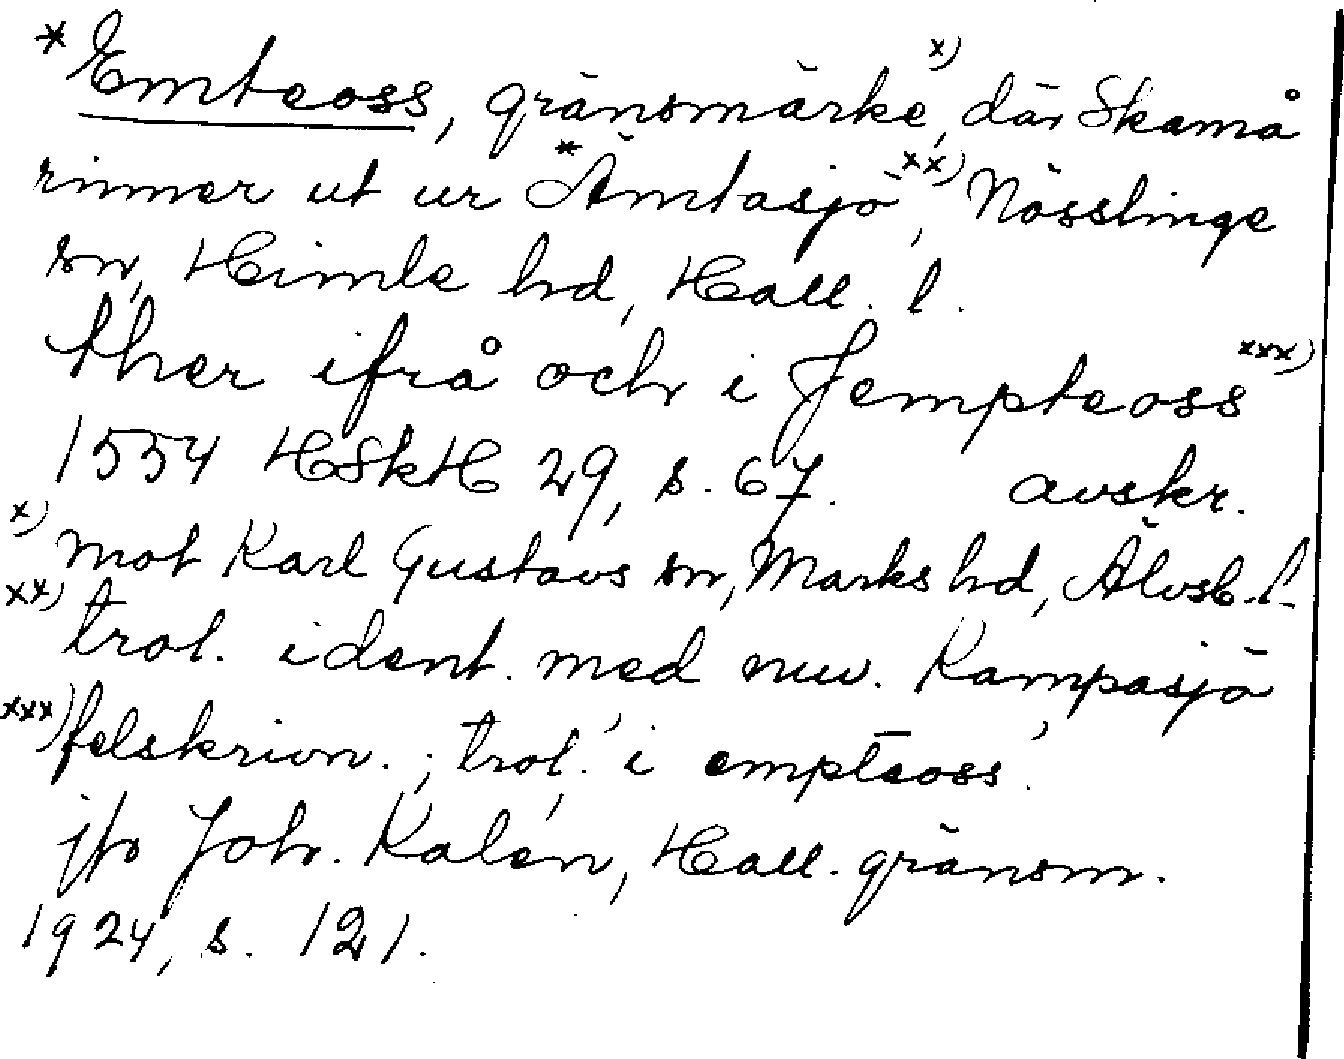 *Emteoss, gränsmärke x), där Skamå
rinner ut ur *Ämtasjö xx), Nösslinge
sn, Himle hd, Hall. l.
ther ifrå och i Jempteoss xxx)
1554 HSkH 29, s. 67. avskr.
x) mot Karl Gustavs sn, Marks hd, Älvsb. l.
xx) trol. ident. med nuv. Kampasjö
xxx) felskrivn.; trol. i empteoss.
jfr Joh. Kalén, Hall. gränsm.
1924, s. 121.